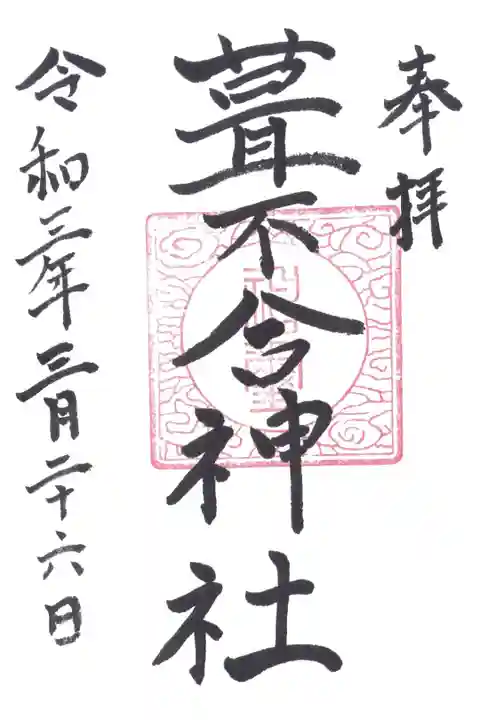 奉拝
葺不合神社
令和三年三月二十六日